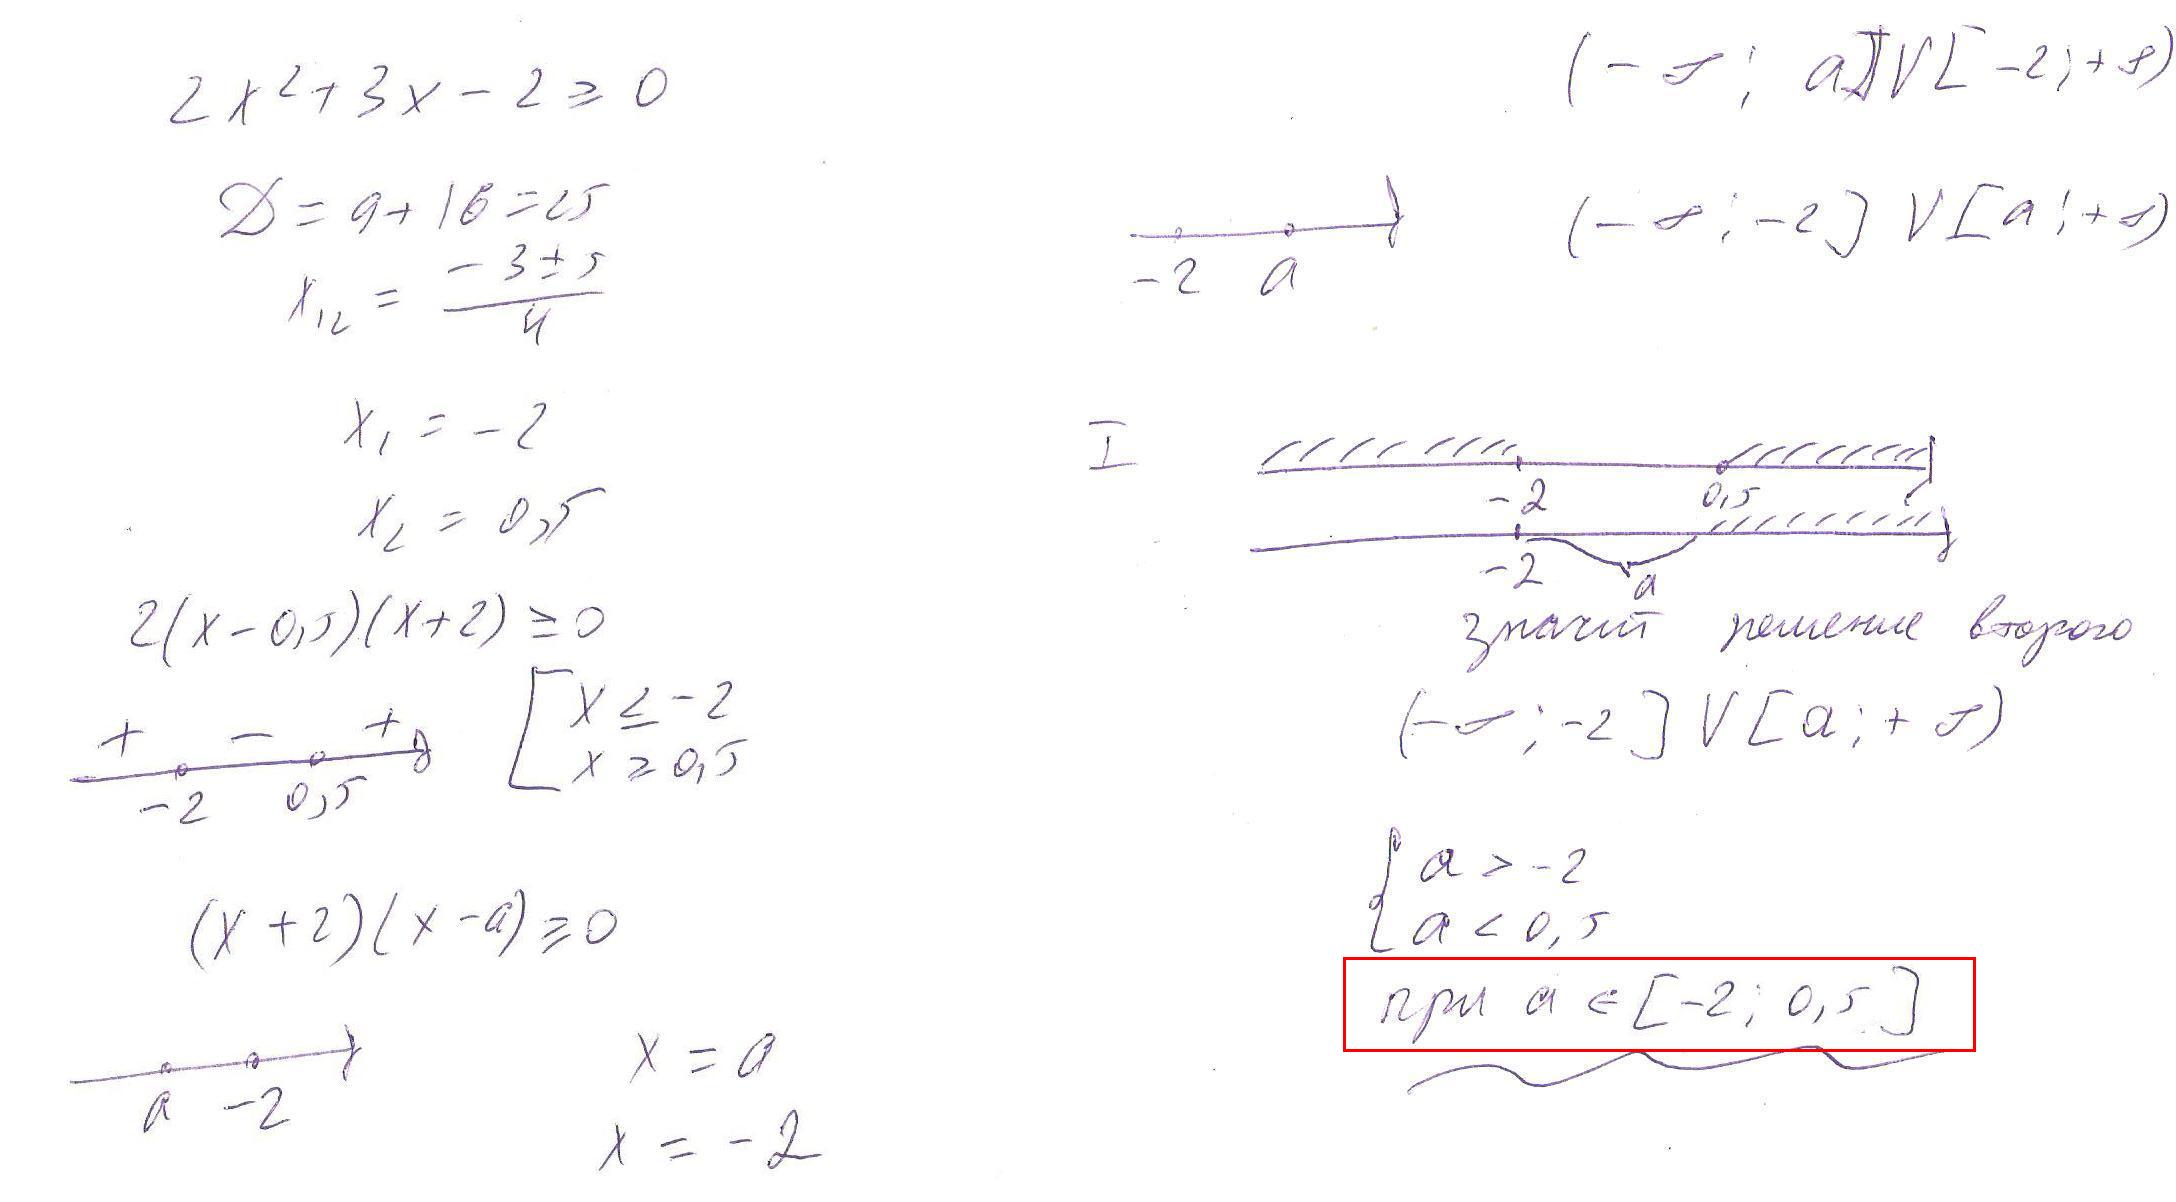 2x²+3x-2≥0
D=9+16=25
x₁₂ = (-3±5)/4
x₁ = -2
x₂ = 0,5
2(x-0,5)(x+2)≥0
+ - +
-2 0,5
[ x≤-2
x≥0,5
(x+2)(x-a)≥0
a -2
x = a
x = -2
(-∞; a] V [-2; +∞)
-2 a
(-∞; -2] V [a; +∞)
I
-2 0,5
-2 a
значит решение второго
(-∞; -2] V [a; +∞)
{ a > -2
a < 0,5
при a ∈ [-2; 0,5]